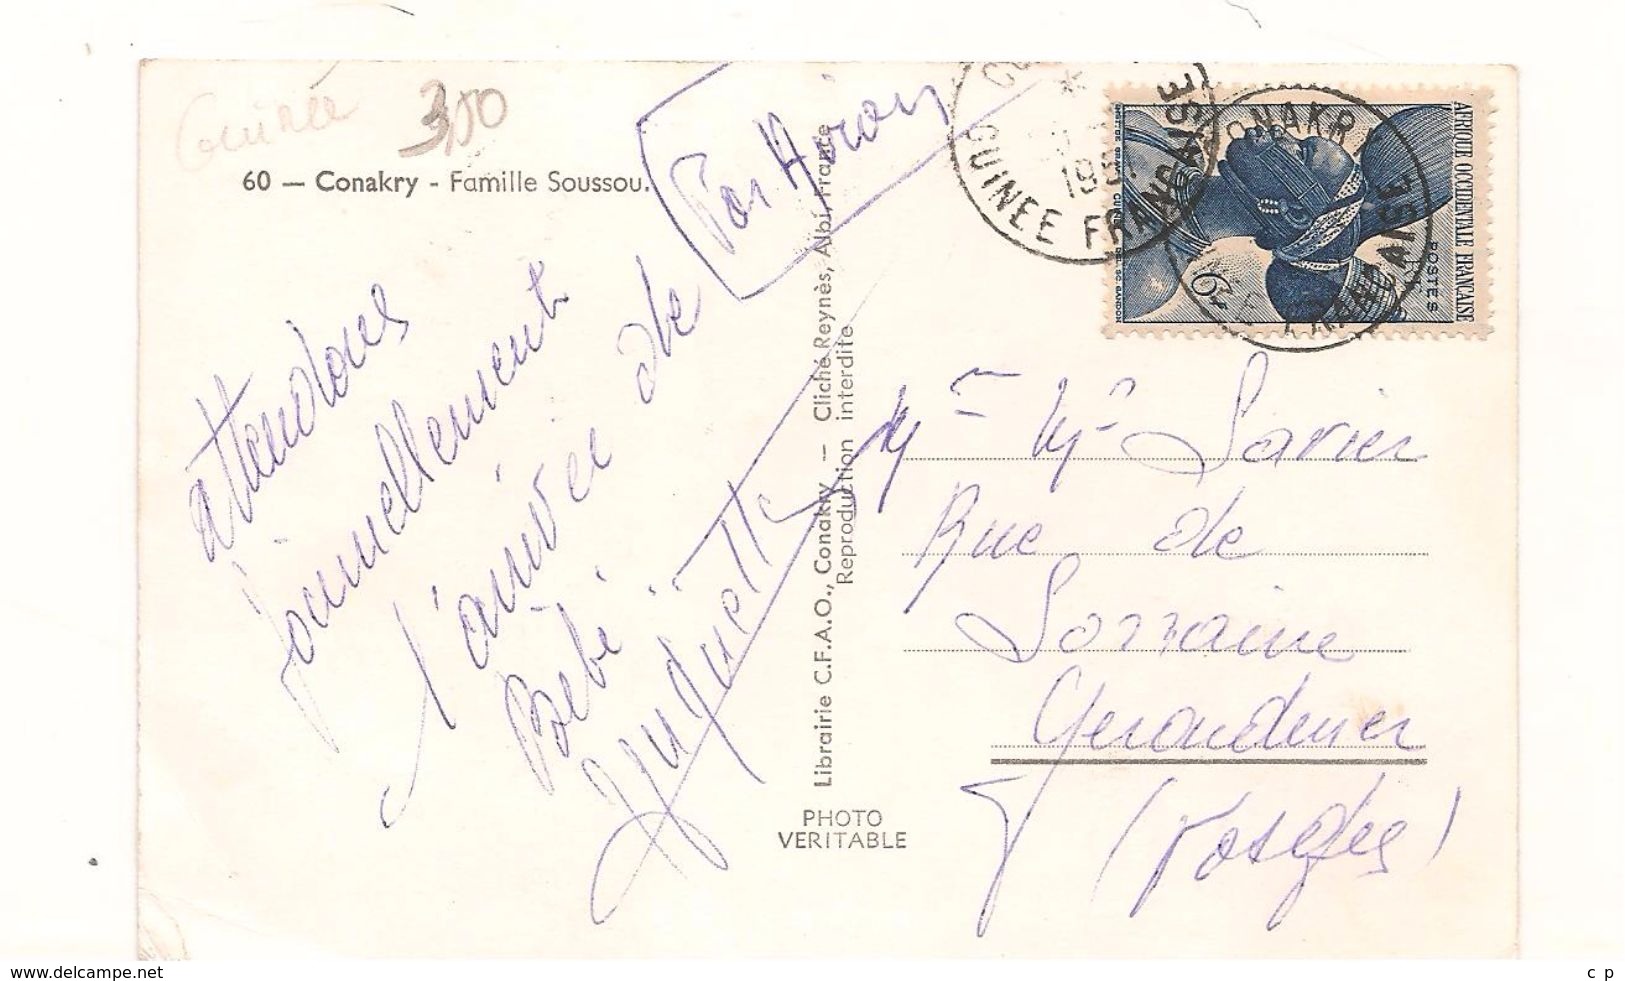 Guinée
3,00
60 — Conakry - Famille Soussou.
Par Avion
attendons
journellement
l'arrivée de
Bébé
Huguette
Librairie C.F.A.O., Conakry — Cliché Reynès, Albi, France
Reproduction interdite
PHOTO
VERITABLE
GUINEE FRANCAISE
195
CONAKR
AFRIQUE OCCIDENTALE FRANÇAISE
POSTES
Mr Me
Rue de
Lorraine
Gerardmer
(Vosges)
www.delcampe.net
c p